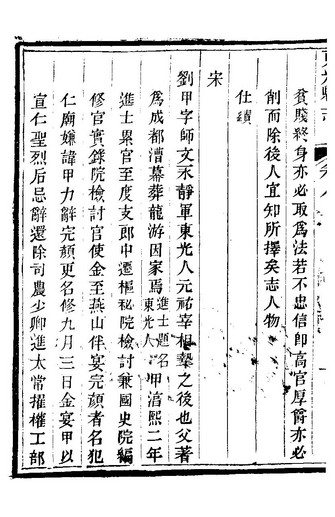 貧賤終身亦必取爲法若不忠信即高官厚爵亦必
削而除後人宜知所擇矣志人物
仕績
宋
劉甲字師文永靜軍東光人元祐宰相摯之後也父著
爲成都漕幕葬龍游因家焉進士題名東光人甲淳熙二年
進士累官至度支郎中遷樞秘院檢討兼國史院編
修官實錄院檢討官使金至燕山伴宴完顏者名犯
仁廟嫌諱甲力辭完顏更名修九月三日金宴甲以
宣仁聖烈后忌辭還除司農少卿進太常擢權工部